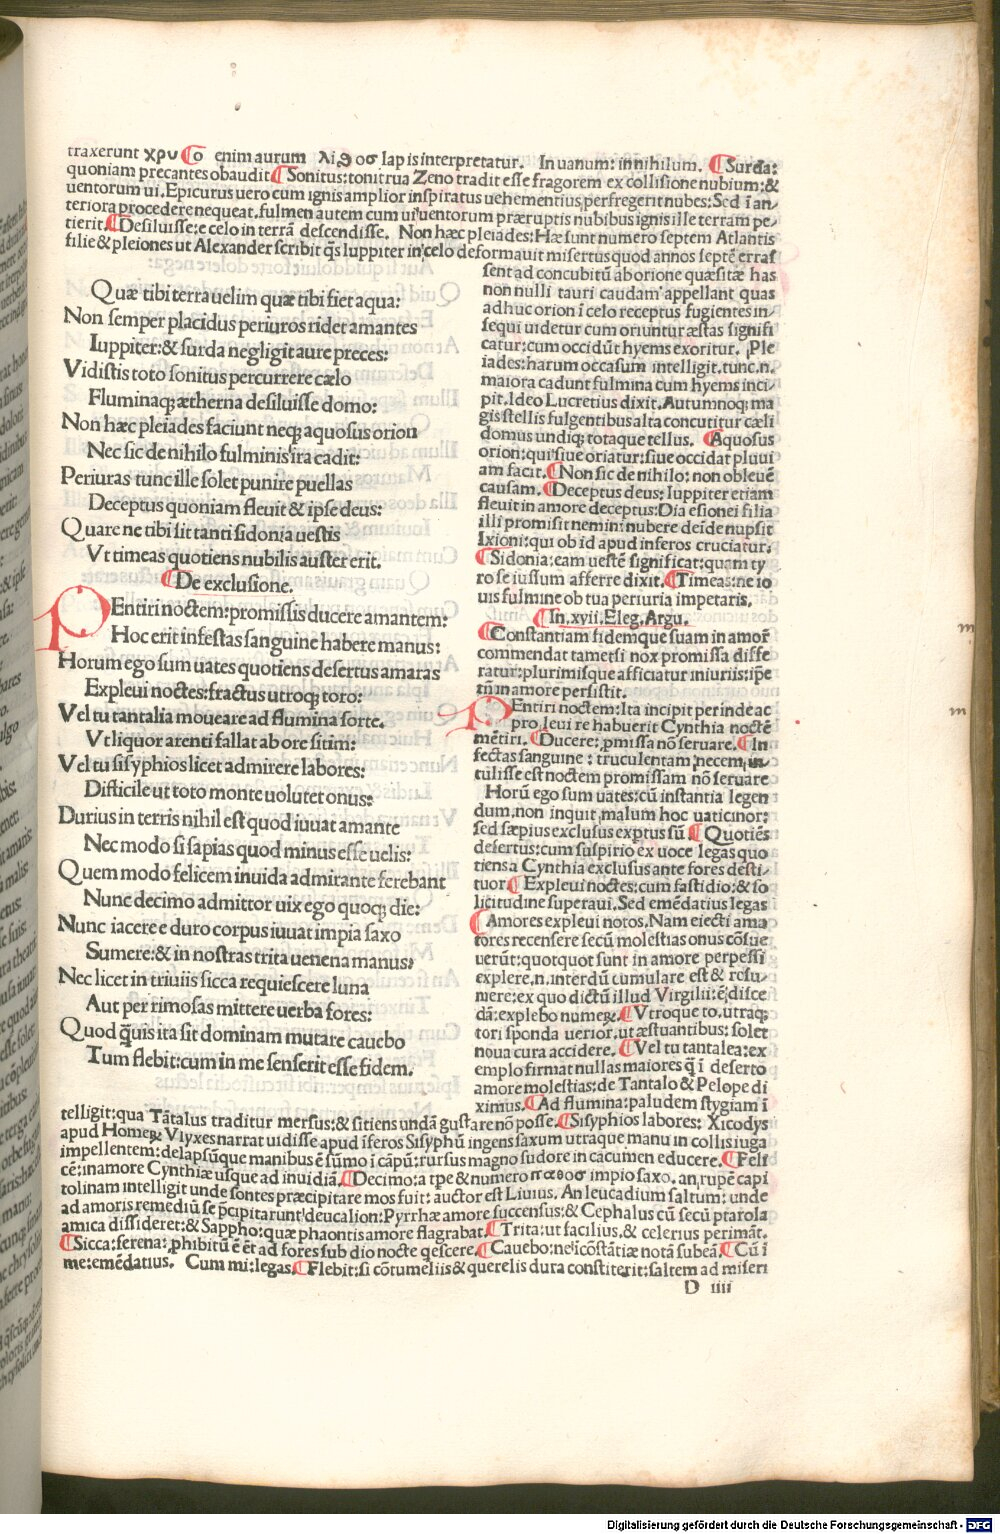 traxerunt χρυ ¶ο enim aurum λιϑοσ lapis interpretatur. In uanum: in nihilum. ¶Surda:
quoniam precantes obaudit ¶Sonitus: tonitrua Zeno tradit esse fragorem ex collisione nubium: &
uentorum ui. Epicurus uero cum ignis amplior inspiratus uehementius, perfregerit nubes: Sed ī an-
teriora procedere nequeat. fulmen autem cum ui uentorum præruptis nubibus ignis ille terram pe-
tierit. ¶Desiluisse: e celo in terrā descendisse. Non hæc pleiades: Hæ sunt numero septem Atlantis
filie & pleiones ut Alexander scribit q̄s Iuppiter in celo deformauit misertus quod annos septē erras
Quæ tibi terra uelim quæ tibi fiet aqua:
Non semper placidus periuros ridet amantes
Iuppiter: & surda negligit aure preces:
Vidistis toto sonitus percurrere cælo
Fluminaqꝫ ætherna desiluisse domo:
Non hæc pleiades faciunt neqꝫ aquosus orion
Nec sic de nihilo fulminis ira cadit:
Periuras tunc ille solet punire puellas
Deceptus quoniam fleuit & ipse deus:
Quare ne tibi sit tanti sidonia uestis
Vt timeas quotiens nubilis auster erit.
¶De exclusione.
PEntiri noctem: promissis ducere amantem:
Hoc erit infestas sanguine habere manus:
Horum ego sum uates quotiens desertus amaras
Expleui noctes: fractus utroqꝫ toro:
Vel tu tantalia moueare ad flumina sorte.
Vt liquor arenti fallat ab ore sitim:
Vel tu sisyphios licet admitere labores:
Difficile ut toto monte uolutet onus:
Durius in terris nihil est quod iuuat amante
Nec modo si sapias quod minus esse uelis:
Quem modo felicem inuida admitante ferebant
Nunc decimo admittor uix ego quoqꝫ die:
Nunc iacere e duro corpus iuuat impia saxo
Sumere: & in nostras trita uenena manus:
Nec licet in triuiis sicca requiescere luna
Aut per rimosas mittere uerba fores:
Quod q̄uis ita sit dominam mutare cauebo
Tum flebit: cum in me senserit esse fidem.
sent ad concubitū ab orione quæsitæ has
non nulli tauri caudam appellant quas
adhuc orion ī celo receptus fugientes in
sequi uidetur cum oriuntur æstas signifi
catur: cum occidūt hyems exoritur. Ple
iades: harum occasum intelligit. tunc.n.
maiora cadunt fulmina cum hyems inci
pit. Ideo Lucretius dixit. Autumnoqꝫ ma
gis stellis fulgentibus alta concutitur cæli
domus undiqꝫ tota que tellus. ¶Aquosus
orion: qui siue oriatur: siue occidat pluui
am facit. ¶Non sic de nihilo: non obleuē
causam. ¶Deceptus deus: Iuppiter etiam
fleuit in amore deceptus: Dia esionei filia
illi promisit nemini nubere deīde nupsit
Ixioni: qui ob id apud inferos cruciatur.
¶Sidonia: eam uestē significat: quam ty
ro se iussum afferre dixit. ¶Timeas: ne io
uis fulmine ob tua periuria impetaris.
¶In .xvii. Eleg. Argu.
¶Constantiam fidemque suam in amorē
commendat tametsi nox promissa diffe
ratur: plurimisque afficiatur iniuriis: ip̄e
tn̄ in amore persistit.
PEntiri noctem: Ita incipit perinde ac
pro leui re habuerit Cynthia noctē
mētiri. ¶Ducere: p̱missa nō seruare. ¶In
fectas sanguine: truculentam necem in
tulisse est noctem promissam nō seruare
Horū ego sum uates: cū instantia legen
dum. non inquit malum hoc uaticinor:
sed sæpius exclusus exptus sū. ¶Quotiēs
desertus: cum suspirio ex uoce legas quo
tiens a Cynthia exclusus ante fores desti-
tuor. ¶Expleui noctes: cum fastidio: & so
licitudine superaui. Sed emēdatius legas
¶Amores expleui notos. Nam eiecti ama
tores recensere secū molestias onus cōsue
uerūt: quotquot sunt in amore perpessi
explere .n. interdū cumulare est & resu-
mere: ex quo dictū illud Virgilii: ē; disce
dā: explebo numeꝝ. ¶Vtroque to. utraqꝫ
tori sponda uerior. ut æstuantibus: solet
noua cura accidere. ¶Vel tu tantalea: ex
emplo firmat nullas maiores q̄ ī deserto
amore molestias: de Tantalo & Pelope di
ximus. ¶Ad flumina: paludem stygiam ī
telligit: qua Tātalus traditur mersus: & sitiens undā gustare nō posse. ¶Sisyphios labores: Xicodys
apud Homeꝝ Vlyxes narrat uidisse apud īferos Sisyphū ingens saxum utraque manu in collis iuga
impellentem: delapsūque manibus ē sūmo ī cāpū: rursus magno sudore in cacumen educere. ¶Feli
cē: in amore Cynthiæ usque ad inuidiā. ¶Decimo: a tp̄e & numero παθοσ impio saxo. an rupē capi
tolinam intelligit unde sontes præcipitare mos fuit: auctor est Liuius. An leucadium saltum: unde
ad amoris remediū se p̄cipitarunt deucalion: Pyrrhæ amore succensus: & Cephalus cū secū ptarola
amica dissideret: & Sappho: quæ phaontis amore flagrabat. ¶Trita: ut facilius, & celerius perimāt.
¶Sicca: serena: p̱hibitū ē ēt ad fores sub dio nocte q̄escere. ¶Cauebo: ne icōstātiæ notā subeā. ¶Cū ī
me: emēdatius. Cum mi: legas. ¶Flebit: si cōtumeliis & querelis dura constiterit: saltem ad miseri
D iiii
m
m
Digitalisierung gefördert durch die Deutsche Forschungsgemeinschaft - DFG